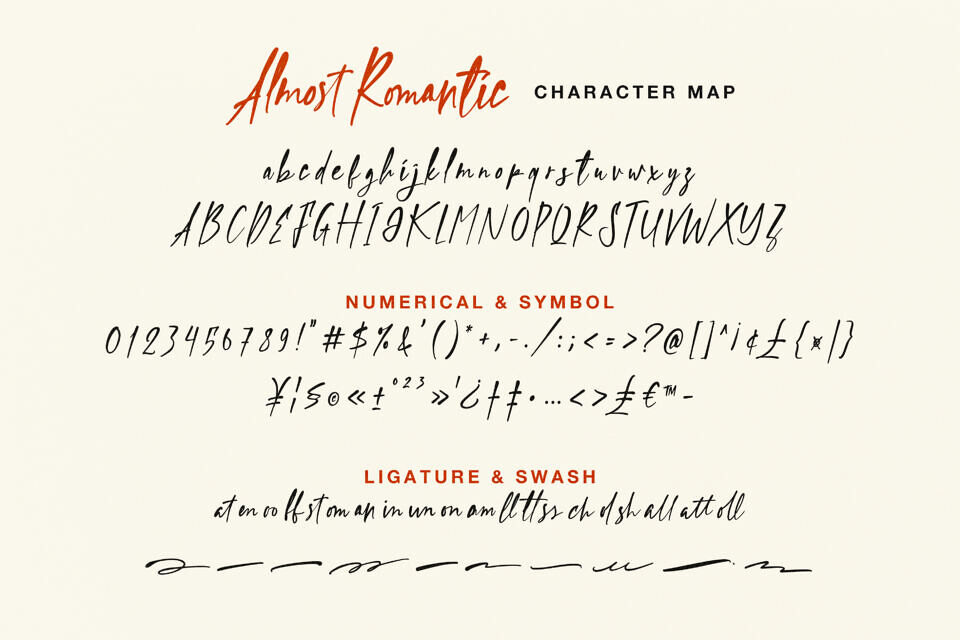 Almost Romantic CHARACTER MAP
abcdefghijklmnopqrstuvwxyz
ABCDEFGHIJKLMNOPQRSTUVWXYZ
NUMERICAL & SYMBOL
0123456789!"#$%&'()*+,-./:;<=>?@[]^¡¢£{¤|}
¥¦§©«±°²³»'¿†‡•…<>₤€™-
LIGATURE & SWASH
at en oo ff st om an in un on am ll tt ss ch ol sh all att oll